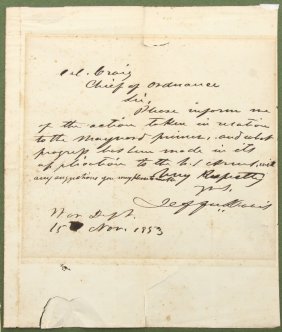 Col. Craig
Chief of Ordnance
Sir,
Please inform me
of the action taken in relation
to the Maynard primer, and what
progress has been made in its
application to the U.S. Arms, with
any suggestions you may
Very Respectfly
yrs.
Jeffn Davis
War Dept.
15 Nov. 1853